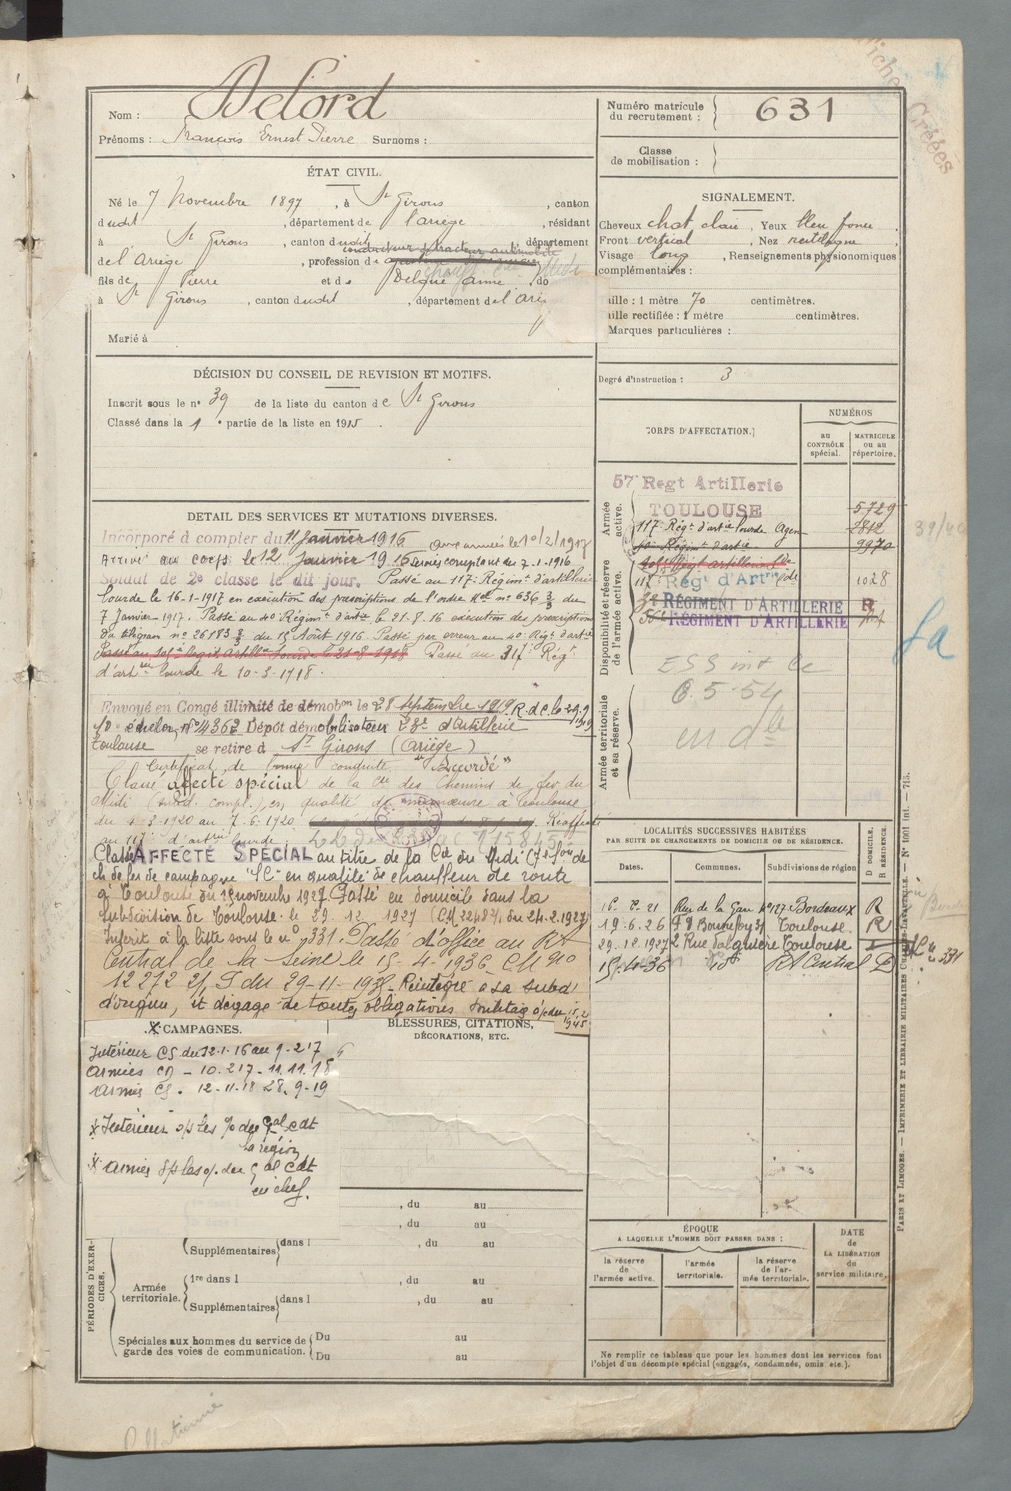 Nom : Delord
Prénoms : François Ernest Pierre Surnoms :
Numéro matricule du recrutement : 631
Classe de mobilisation :
ÉTAT CIVIL.
Né le 7 Novembre 1897, à St Girons, canton
dudit, département de l'ariège, résidant
à St Girons, canton dudit, département
de l'Ariège, profession de conducteur tracteur automobile
fils de Pierre et de Delqué Anne, do
à St Girons, canton dudit, département de l'Ari
Marié à
SIGNALEMENT.
Cheveux chat clair, Yeux bleu foncé
Front vertical, Nez rectiligne
Visage long, Renseignements physionomiques
complémentaires :
aille : 1 mètre 70 centimètres.
aille rectifiée : 1 mètre centimètres.
Marques particulières :
Degré d'instruction : 3
DÉCISION DU CONSEIL DE REVISION ET MOTIFS.
Inscrit sous le no 39 de la liste du canton de St Girons
Classé dans la 1e partie de la liste en 1915.
CORPS D'AFFECTATION.
NUMÉROS
AU CONTRÔLE spécial.
MATRICULE ou au répertoire.
Armée active.
57e Regt Artillerie
TOULOUSE 5729
117e Régt d'artie lourde Agen
9970
Disponibilité et réserve de l'armée active.
117e Régt d'Artrie Lde 1028
RÉGIMENT D'ARTILLERIE R
RÉGIMENT D'ARTILLERIE
Armée territoriale et sa réserve.
6.5.54
DÉTAIL DES SERVICES ET MUTATIONS DIVERSES.
Incorporé à compter du 11 Janvier 1916 aux armées le 10/2/1917
Arrivé au corps le 12 Janvier 1916 Services comptant du 7-1-1916
Soldat de 2e classe le dit jour. Passé au 117e Régimt d'artillerie
lourde le 16-1-1917 en exécution des prescriptions de l'ordre Mel no 636 3/3 du
7 Janvier 1917. Passé au 40e Régimt d'artie le 21.8.16 exécution des prescriptions
du télégram no 26183 3/3 du 15 Août 1916. Passé par erreur au 40e Régt d'artie
Passé au 317e Régt
d'artie lourde le 10-3-1918.
Envoyé en Congé illimité de démobon le 28 Septembre 1919 R.d.C. le 29.9.19
échelon, No 4362 Dépôt démobilisateur d'artillerie
Toulouse se retire à St Girons (Ariège)
Certificat de bonne conduite "Accordé"
Classé affecté spécial de la Cie des Chemins de fer du
Midi (subd. compl.) en qualité de manœuvre à Toulouse
du 1-3-1920 au 7.6.1920 Réaffecté
au 117e d'artrie lourde
Classé AFFECTÉ SPÉCIAL au titre de la Cie du Midi
ch de fer de campagne "SC" en qualité de chauffeur de route
à Toulouse du 15 novembre 1927 Passé en domicile dans la
subdivision de Toulouse le 29.12.1927 (CM 22487 du 24-2-1927)
Inscrit à la liste sous le no 331. Passé d'office au Rt
Central de la Seine le 15-4-1936 CM no
12272 2/J du 29-11-1938. Réintégré à sa subd.
d'origine, et dégagé de toutes obligations militaires
LOCALITÉS SUCCESSIVES HABITÉES
PAR SUITE DE CHANGEMENTS DE DOMICILE OU DE RÉSIDENCE.
Dates. Communes. Subdivisions de région D DOMICILE. R RÉSIDENCE.
Rue de la Gare No 127 Bordeaux R
19.6.26 Fg Bonnefoy 31 Toulouse R
29.12.1927 2 Rue Dalquière Toulouse
15-4-36 Rt Central D
331
CAMPAGNES.
Intérieur CS du 12-1-16 au 9-2 17
Armées CD - 10.2 17 - 11.11.18
Armées CS - 12-11.18 28.9-19
x Intérieur s/s les o/ du Gal Cdt
la région
x Armées s/s les o/ du Gal Cdt
en chef.
BLESSURES, CITATIONS, DÉCORATIONS, ETC.
PÉRIODES D'EXERCICES.
, du au
, du au
Supplémentaires dans l , du au
Armée territoriale.
1re dans l , du au
Supplémentaires dans l , du au
Spéciales aux hommes du service de garde des voies de communication.
Du au
Du au
ÉPOQUE
A LAQUELLE L'HOMME DOIT PASSER DANS :
la réserve de l'armée active.
l'armée territoriale.
la réserve de l'armée territoriale.
DATE de LA LIBÉRATION du service militaire.
Ne remplir ce tableau que pour les hommes dont les services font
l'objet d'un décompte spécial (engagés, condamnés, omis etc.).
PARIS ET LIMOGES. — IMPRIMERIE ET LIBRAIRIE MILITAIRES CHARLES-LAVAUZELLE. — No 1001 int. — 715.
Fiches Créées
39/40